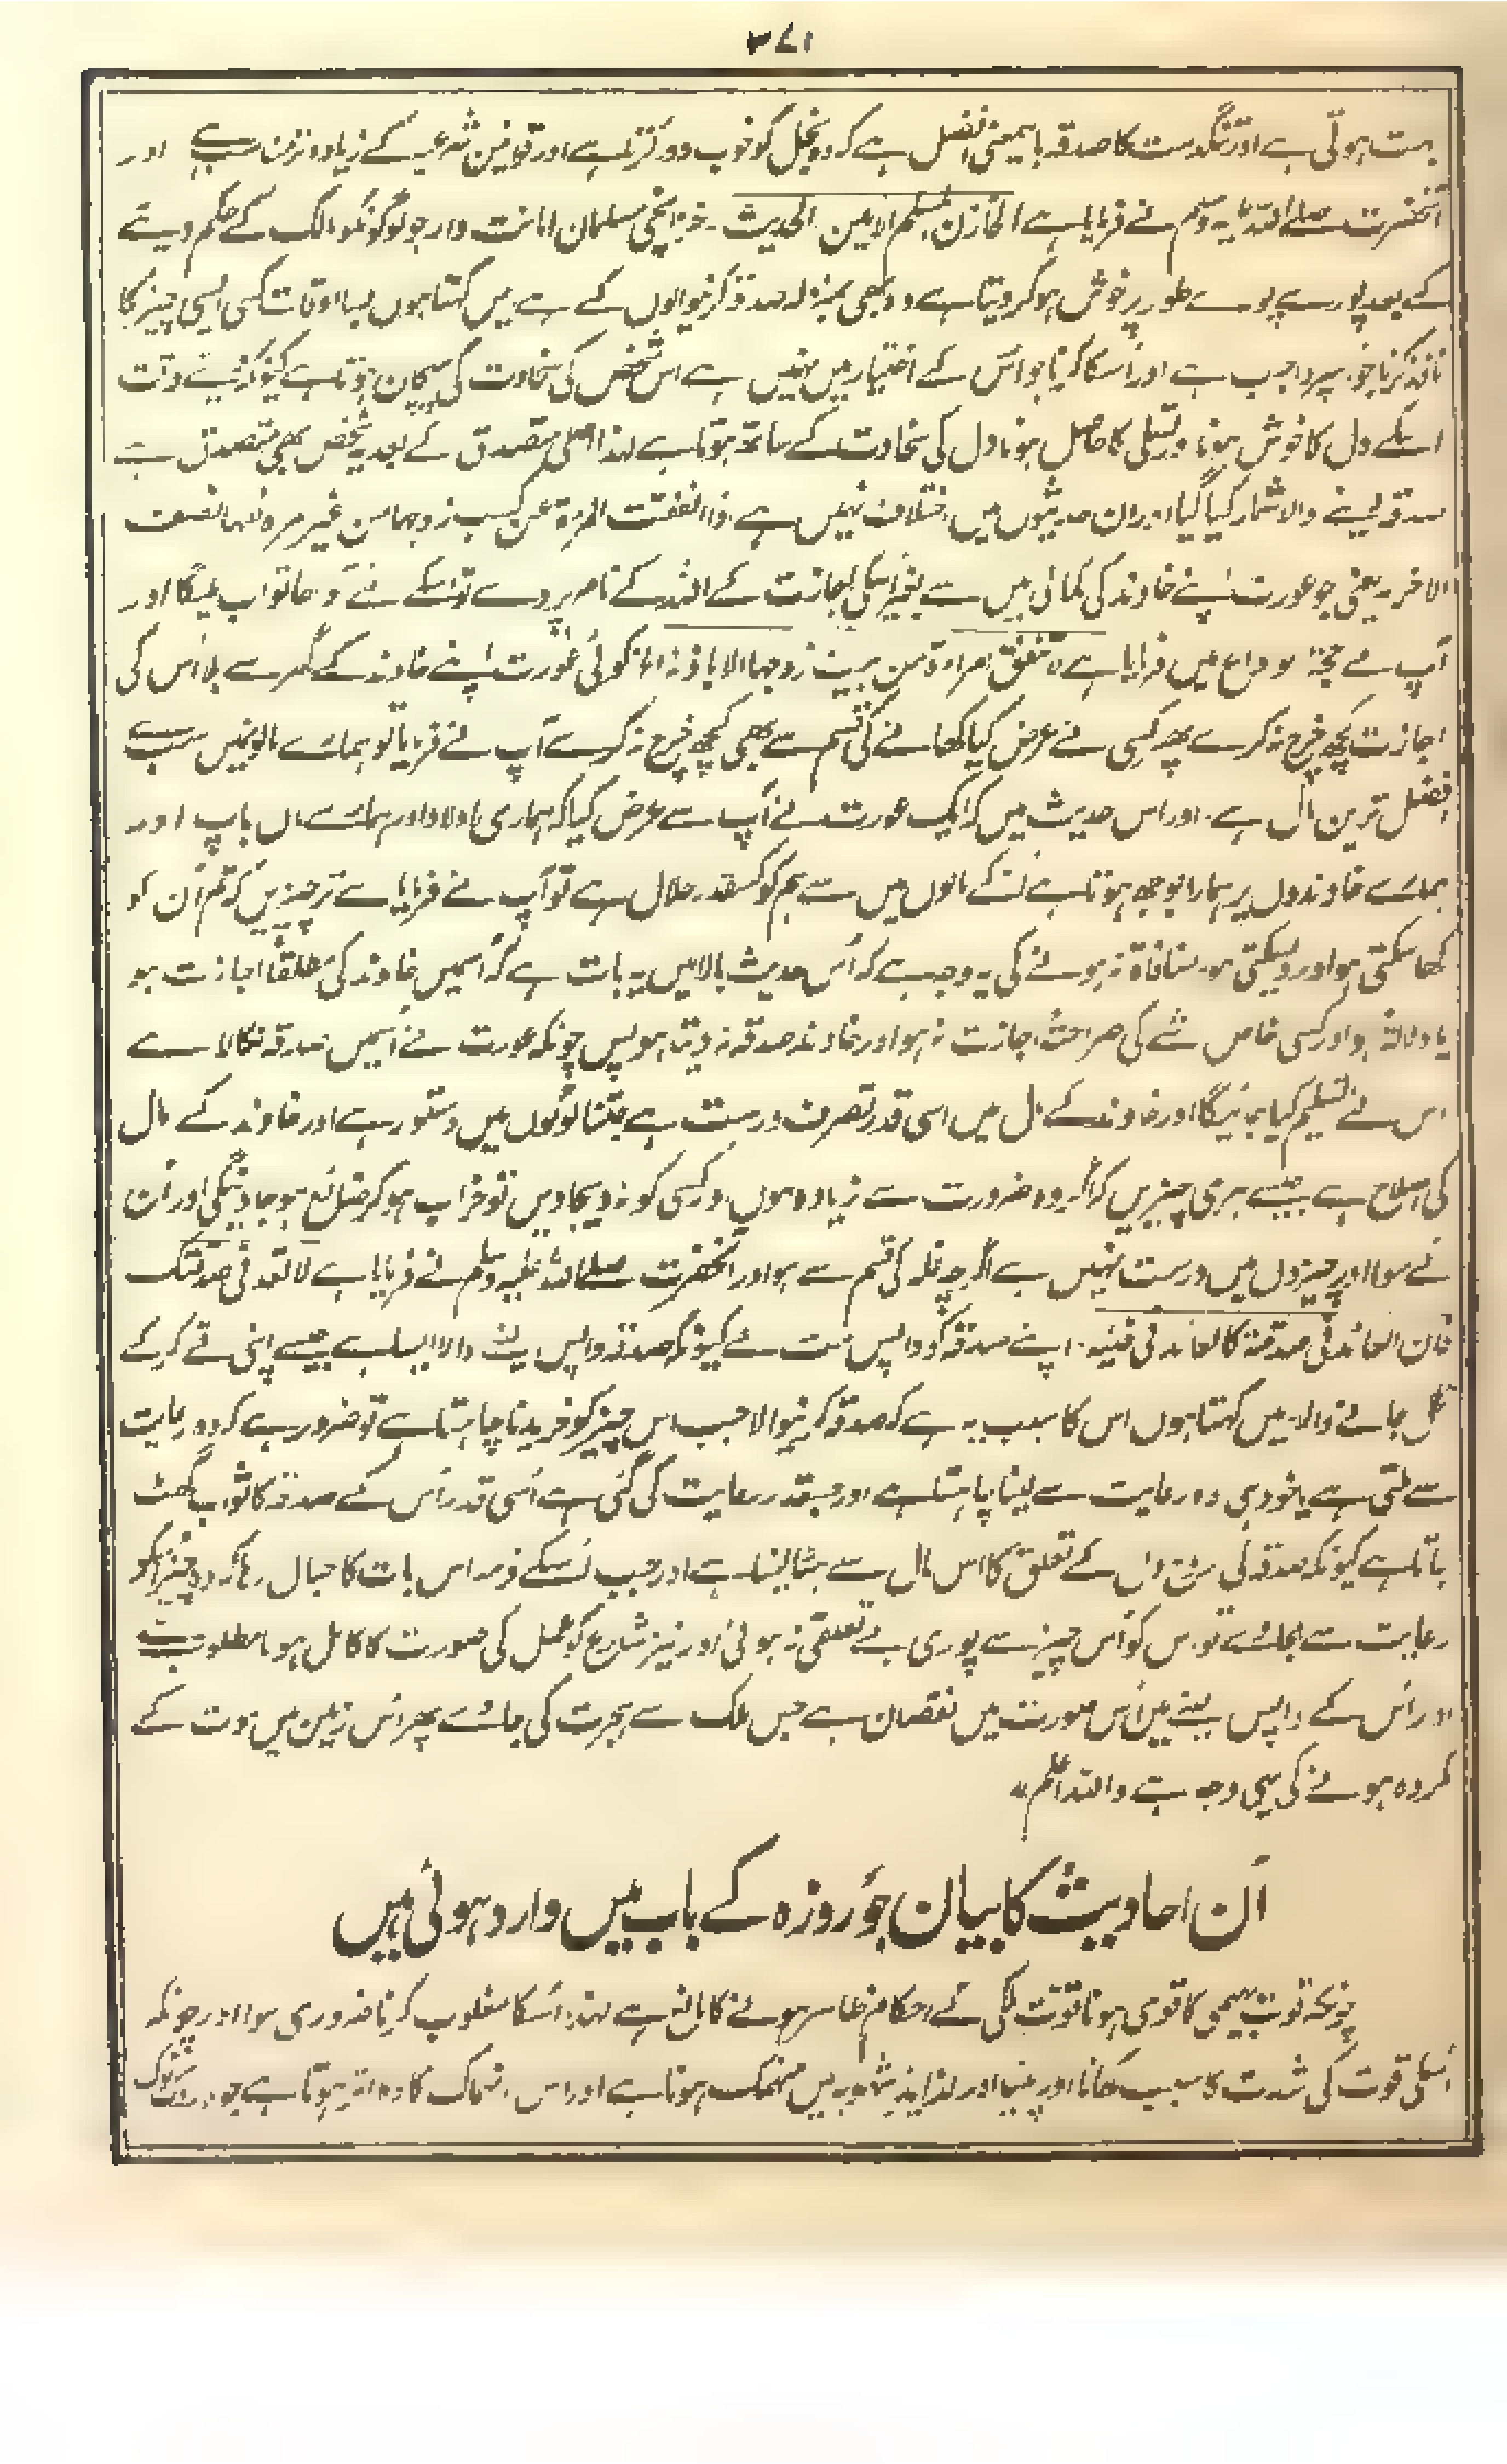 ۳۷۱
ہت ہوتی ہے اور تنگدست کا صدقہ بایںمعنی افضل ہے کہ وہ بخل کو خوب دور کرتا ہے اور قوانین شرعیہ کے زیادہ تر سبب ہے اور
آنحضرت صلے اللہ علیہ وسلم نے فرمایا ہے الخازن المسلم الامین الحدیث۔ خزانچی مسلمان امانت دار جو لوگونکو مالک کے حکم دیئے
کے بعد پورے پورے طور پر خوش ہو کر دیتا ہے وہ بھی بمنزلہ صدقہ کرنیوالوں کے ہے میں کہتا ہوں بسا اوقات کسی ایسی چیز کا
نافذ کرنا جو اسپر واجب ہے اور اُسکا کرنا جو اُس کے اختیار میں نہیں ہے اس شخص کی سخاوت کی پہچان ہوتا ہے کیونکہ دیتے وقت
اسکے دل کا خوش ہونا و تسلی کا حاصل ہونا دل کی سخاوت کے ساتھ ہوتا ہے لہذا اصلی متصدق کے بعد یہ شخص بھی متصدق ہے
صدقہ دینے والا شمار کیا گیا اور ان حدیثوں میں اختلاف نہیں ہے اذا انفقت المرءة عن کسب زوجہا من غیر امرہ فلہا نصف
الاخر۔ یعنی جو عورت اپنے خاوند کی کمائی میں سے بغیر اسکی اجازت کے اللہ کے نام پر دے تو اسکے لئے آدھا ثواب ملیگا اور
آپ نے حجۃ الوداع میں فرمایا ہے لا تنفق امراءة من بیت زوجہا الا باذنہ الخ کوئی عورت اپنے خاوند کے گھر سے بلا اُس کی
اجازت کچھ خرچ نہ کرے پھر کسی نے عرض کیا کھانے کی قسم سے بھی کچھ خرچ نہ کرے آپ نے فرمایا تو ہمارے مالونمیں سب سے
افضل ترین مال ہے۔ اور اس حدیث میں کہ ایک عورت نے آپ سے عرض کیا کہ ہماری اولاد اور ہمارے ماں باپ اور
ہمارے خاوندوں پر ہمارا بوجھ ہوتا ہے اُنکے مالوں میں سے ہم کو کسقدر حلال ہے تو آپ نے فرمایا ہے تر چیزیں کہ تم اُن کو
کھا سکتی ہو اور دیسکتی ہو۔ منافاۃ نہ ہونے کی یہ وجہ ہے کہ اُس حدیث بالا میں یہ بات ہے کہ اُسمیں خاوند کی مطلقاً اجازت ہو
یا دلالۃً ہو اور کسی خاص شے کی صراحتہً اجازت نہ ہو اور خاوند صدقہ نہ دیتا ہو پس چونکہ عورت نے اُسمیں صدقہ نکالا ہے
اس لئے تسلیم کیا جائیگا اور خاوند کے مال میں اسی قدر تصرف درست ہے جتنا لوگوں میں دستور ہے اور خاوند کے مال
کی اصلاح ہے جیسے ہری چیزیں کہ اگر وہ ضرورت سے زیادہ ہوں اور کسی کو نہ دیجاویں تو خراب ہو کر ضائع ہو جاوینگی اور اُن
کے سوا اور چیزوں میں درست نہیں ہے اگرچہ غلہ کی قسم سے ہو اور آنحضرت صلے اللہ علیہ وسلم نے فرمایا ہے لا تعد فی صدقتک
فان العائد فی صدقتہ کالعائد فی قیئہ۔ اپنے صدقہ کو واپس مت لے کیونکہ صدقہ واپس لینے والا ایسا ہے جیسے اپنی قے کر کے
نگل جانے والا۔ میں کہتا ہوں اس کا سبب یہ ہے کہ صدقہ کرنیوالا جب اس چیز کو خریدنا چاہتا ہے تو ضرور ہے کہ وہ رعایت
سے ملتی ہے یا خود ہی وہ رعایت سے لینا چاہتا ہے اور جسقدر رعایت کی گئی ہے اُسی قدر اُس کے صدقہ کا ثواب گھٹ
جاتا ہے کیونکہ صدقہ کی روح دل کے تعلق کا اس مال سے ہٹا لینا ہے اور جب اُسکے ذمہ اس بات کا خیال رہا کہ وہ چیز اُسکو
رعایت سے مل جائے تو اس کو اُس چیز سے پوری بے تعلقی نہ ہوئی اور نیز شارع کو عمل کی صورت کا کامل ہونا مطلوب ہے
اور اُس کے واپس لینے میں اُس صورت میں نقصان ہے جس ملک سے ہجرت کی جائے پھر اُس زمین میں موت کے
مکروہ ہونے کی یہی وجہ ہے واللہ اعلم۔
اُن احادیث کا بیان جو روزہ کے باب میں وارد ہوئی ہیں
چونکہ قوت بہیمی کا قوی ہونا قوت ملکی کے احکام ظاہر ہونے کا مانع ہے لہذا اُسکا مغلوب کرنا ضروری ہوا اور چونکہ
اُسکی قوت کی شدت کا سبب کھانا اور پینا اور لذایذ شہویہ میں منہمک ہونا ہے اور اس انہماک کا وہ اثر ہوتا ہے جو